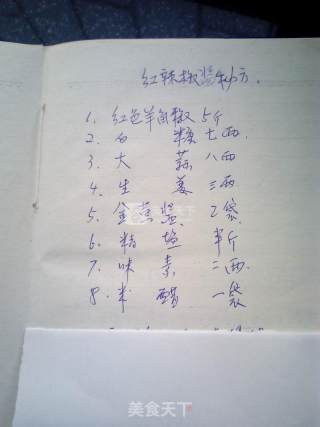 红辣椒酱秘方.
1. 红色羊角椒 5斤
2. 白 糖 七两
3. 大 蒜 八两
4. 生 姜 三两
5. 金 酱 2袋
6. 精 盐 半斤
7. 味 素 二两
8. 米 醋 一袋
美食天下